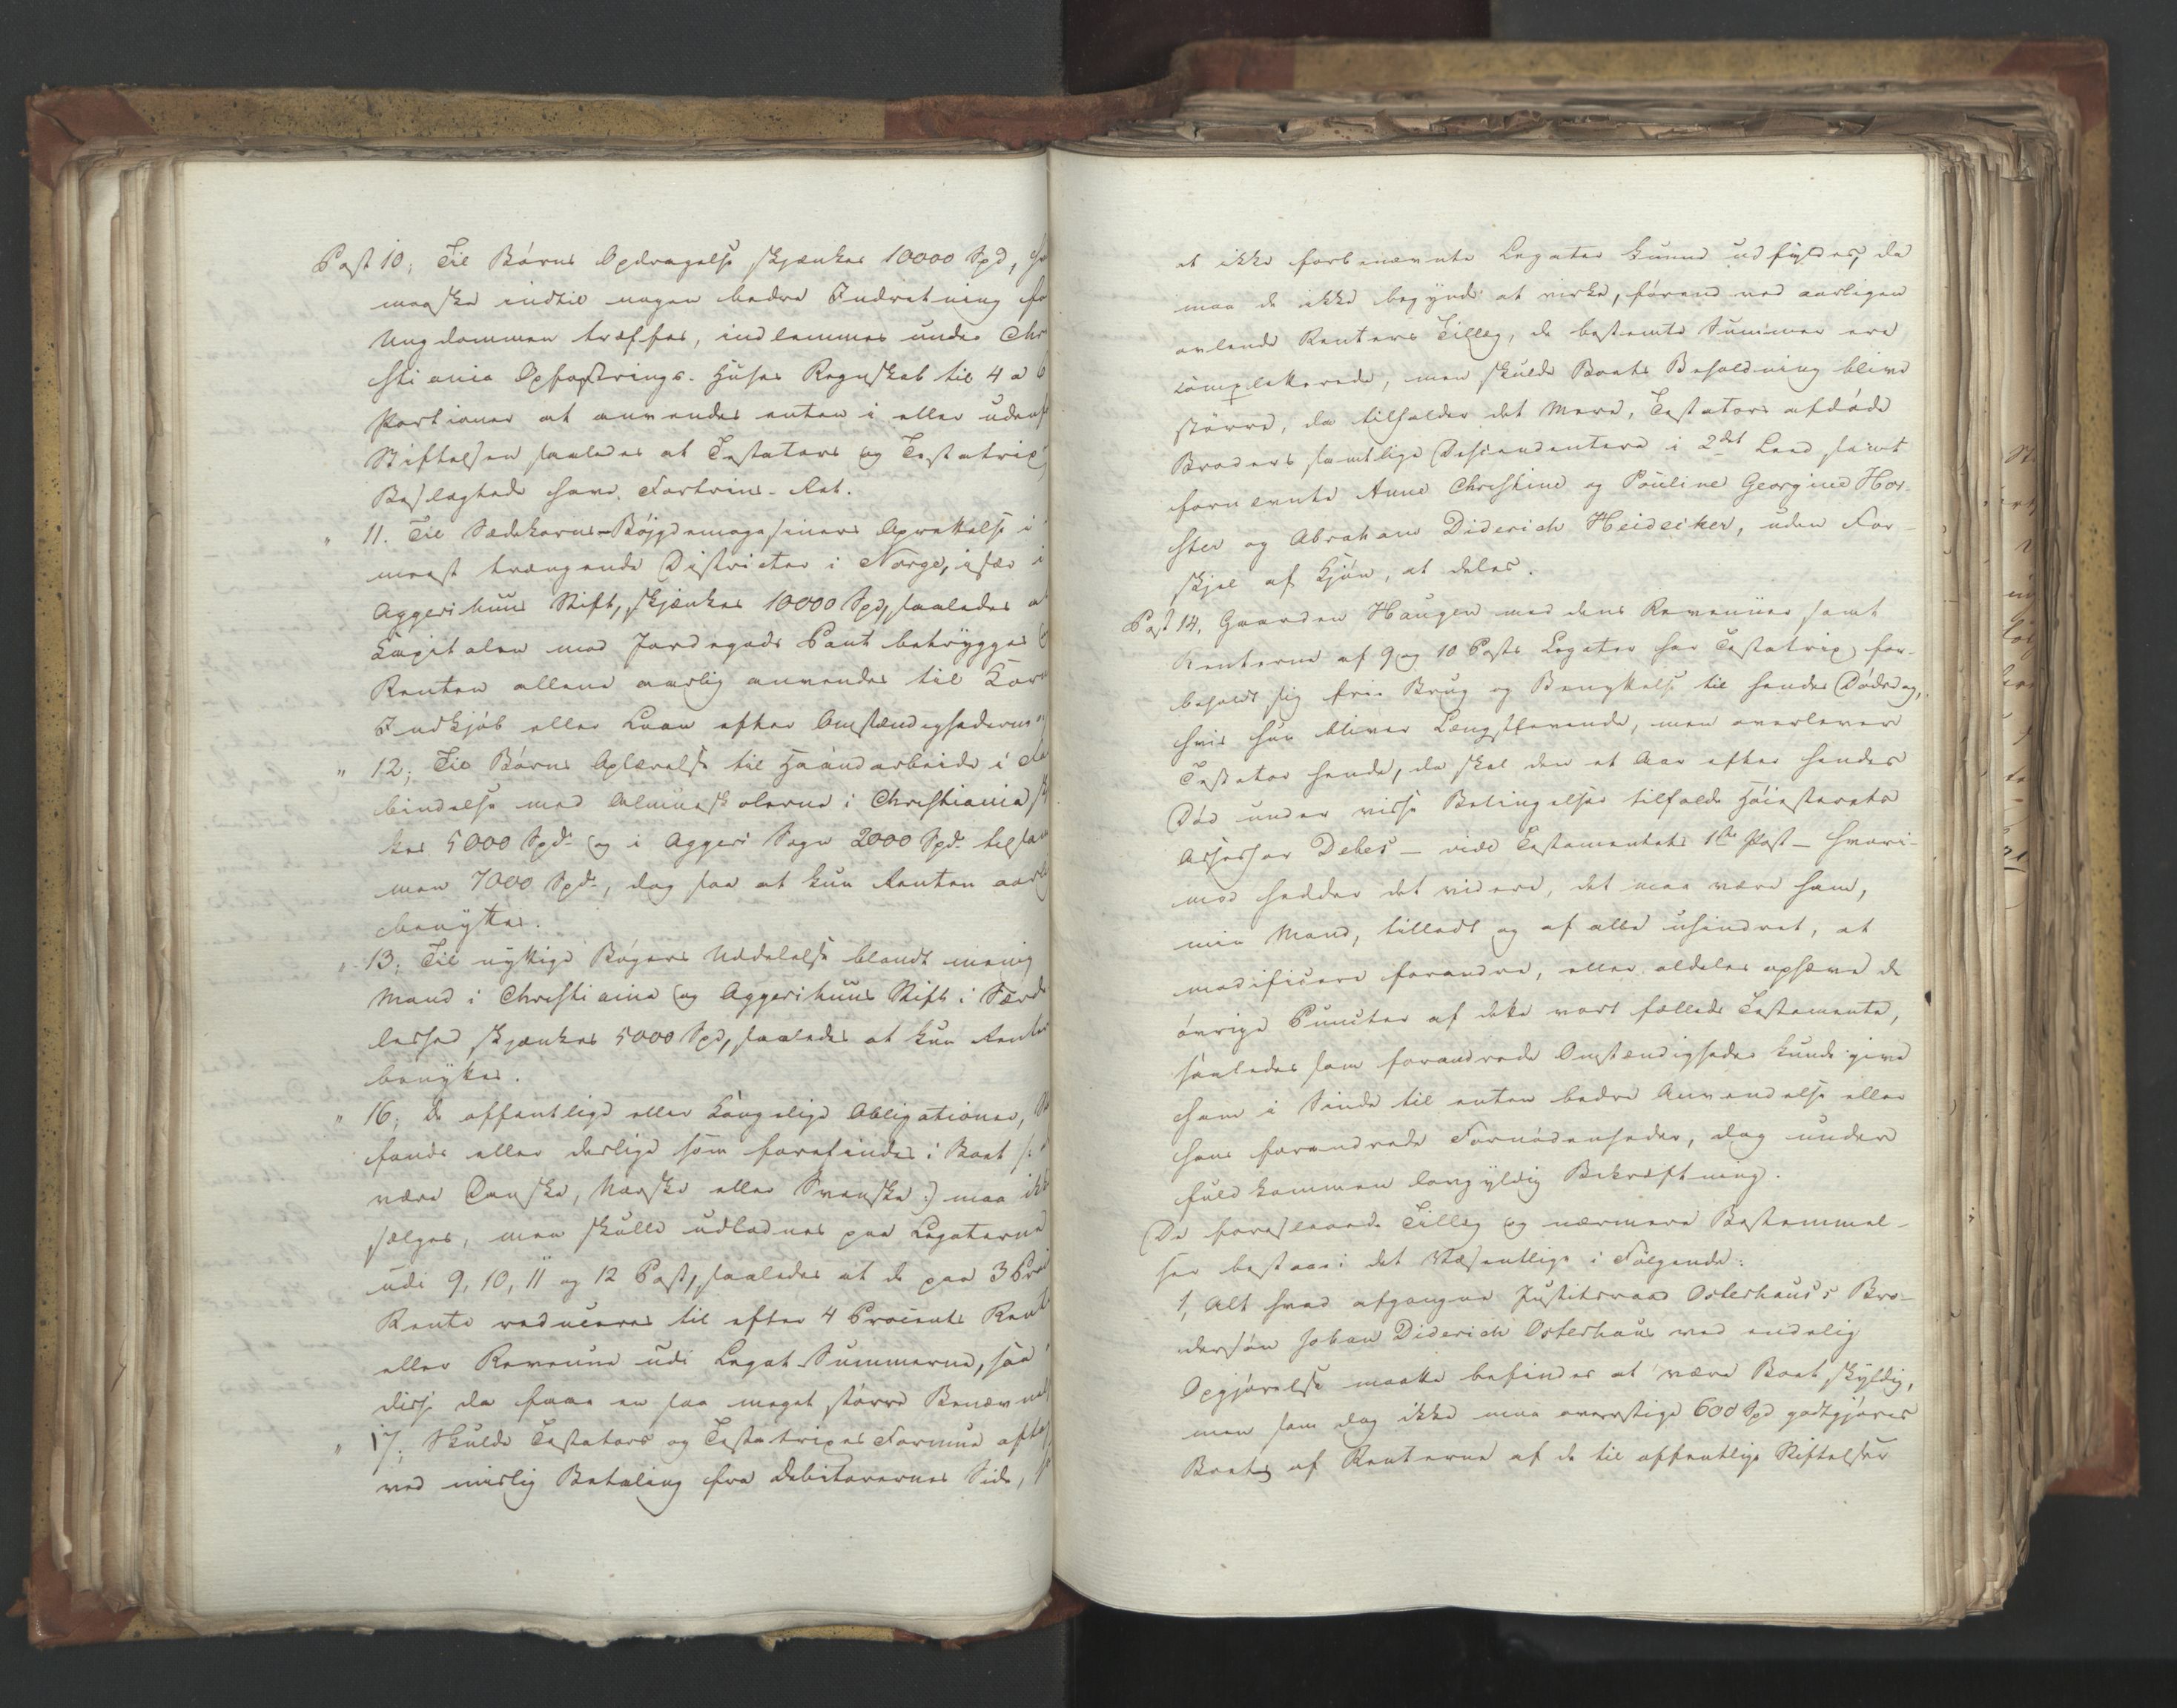 Post 10, Til Børns Opdragelse skjænkes 10000 Spd,
maaske indtil nogen bedre Indretning fo
Ungdommen træffes, indlemmes under Chr
stiania Opfostrings-Huses Regnskab til 4 a 6
Portioner at anvendes enten i eller udenf
Stiftelsen saaledes at Testators og Testatrix
Beslægtede have Fortrins-Ret.
" 11. Til Sædekorns-Bøjgdemagasiners Oprettelse i
meest trængende Districter i Norge, især i
Aggershuus Stift, skjænkes 10000 Spd, saaledes at
Capitalen mod Jordegods Pant betrygges
Renten allene aarlig anvendes til Korn
Indkjøb eller Laan efter Omstændighederne
" 12, Til Børns Oplærelse til Haandarbeide i
bindelse med Almueskolerne i Christiania
kes 5000 Spd. og i Aggers Sogn 2000 Spd. tilsam
men 7000 Spd., dog saa at kun Renten aarl
benyttes.
" 13, Til nyttige Bøgers Uddelelse blandt menig
Mand i Christiania og Aggershuus Stift i Særde
leshed skjænkes 5000 Spd, saaledes at kun Renten
benyttes.
" 16, De offentlige eller Kongelige Obligationer,
fonds eller deslige som forefindes i Boet
være Danske, Norske eller Svenske :) maa ikke
sælges, men skulle udlodnes paa Legaterne
udi 9, 10, 11 og 12 Post, saaledes at de paa 3 Pro
Rente reduceres til efter 4 Procents Rente
eller Revenue udi Legat-Summerne, saa
disse da faae en saa meget større Benævnelse
" 17, Skulde Testators og Testatrixes Formue
ved mislig Betaling fra Debitorernes Side,
at ikke forbenævnte Legater kunne udfyldes, da
maa de ikke begynde at virke, førend ved aarligen
avlende Renters Tillæg, de bestemte Summer ere
completterede, men skulde Boets Beholdning blive
større, da tilfalder det Mere, Testators afdøde
Broders samtlige Descendentere i 2det Leed samt
fornævnte Anne Christine og Pouline Georgine Hor-
ster og Abraham Diderich Heidecker, uden For-
skjel af Kjøn, at deles.
Post 14, Gaarden Haugen med dens Revenuer samt
Renterne af 9 og 10 Posts Legater har Testatrix for-
beholdt sig frie Brug og Benyttelse til hendes Dødsdag,
hvis hun bliver Længstlevende, men overlever
Testator hende, da skal den et Aar efter hendes
Død under visse Betingelser tilfalde Høiesterets
Assessor Debes — vide Testamentets 1ste Post — Hvori-
mod hedder det videre, det maa være ham,
min Mand, tilladt og af alle uhindret, at
modificere forandre, eller aldeles ophæve de
øvrige Puncter af dette vort fælleds Testamente,
saaledes som forandrede Omstændigheder kunde give
ham i Sinde til enten bedre Anvendelse eller
hans forandrede Fornødenheder, dog under
fuldkommen lovgyldig Bekræftning.
De foreslaaede Tillæg og nærmere Bestemmel-
ser bestaae i det Væsentlige i Følgende:
1, Alt hvad afgangne Justitsraad Osterhaus's Bro-
dersøn Johan Diderich Osterhaus ved endelig
Opgjørelse maatte befindes at være Boet skyldig,
men som dog ikke maa overstige 600 Spd godtgjøres
Boet af Renterne af de til offentlige Stiftelser